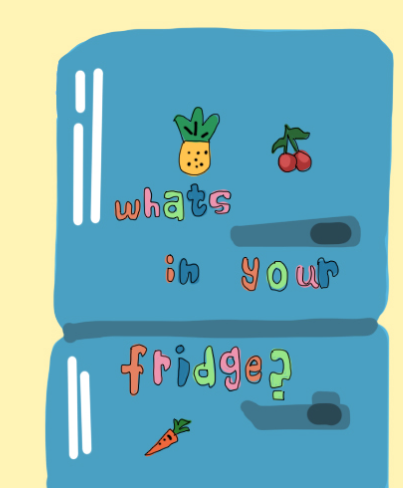 whats
in your
fridge?